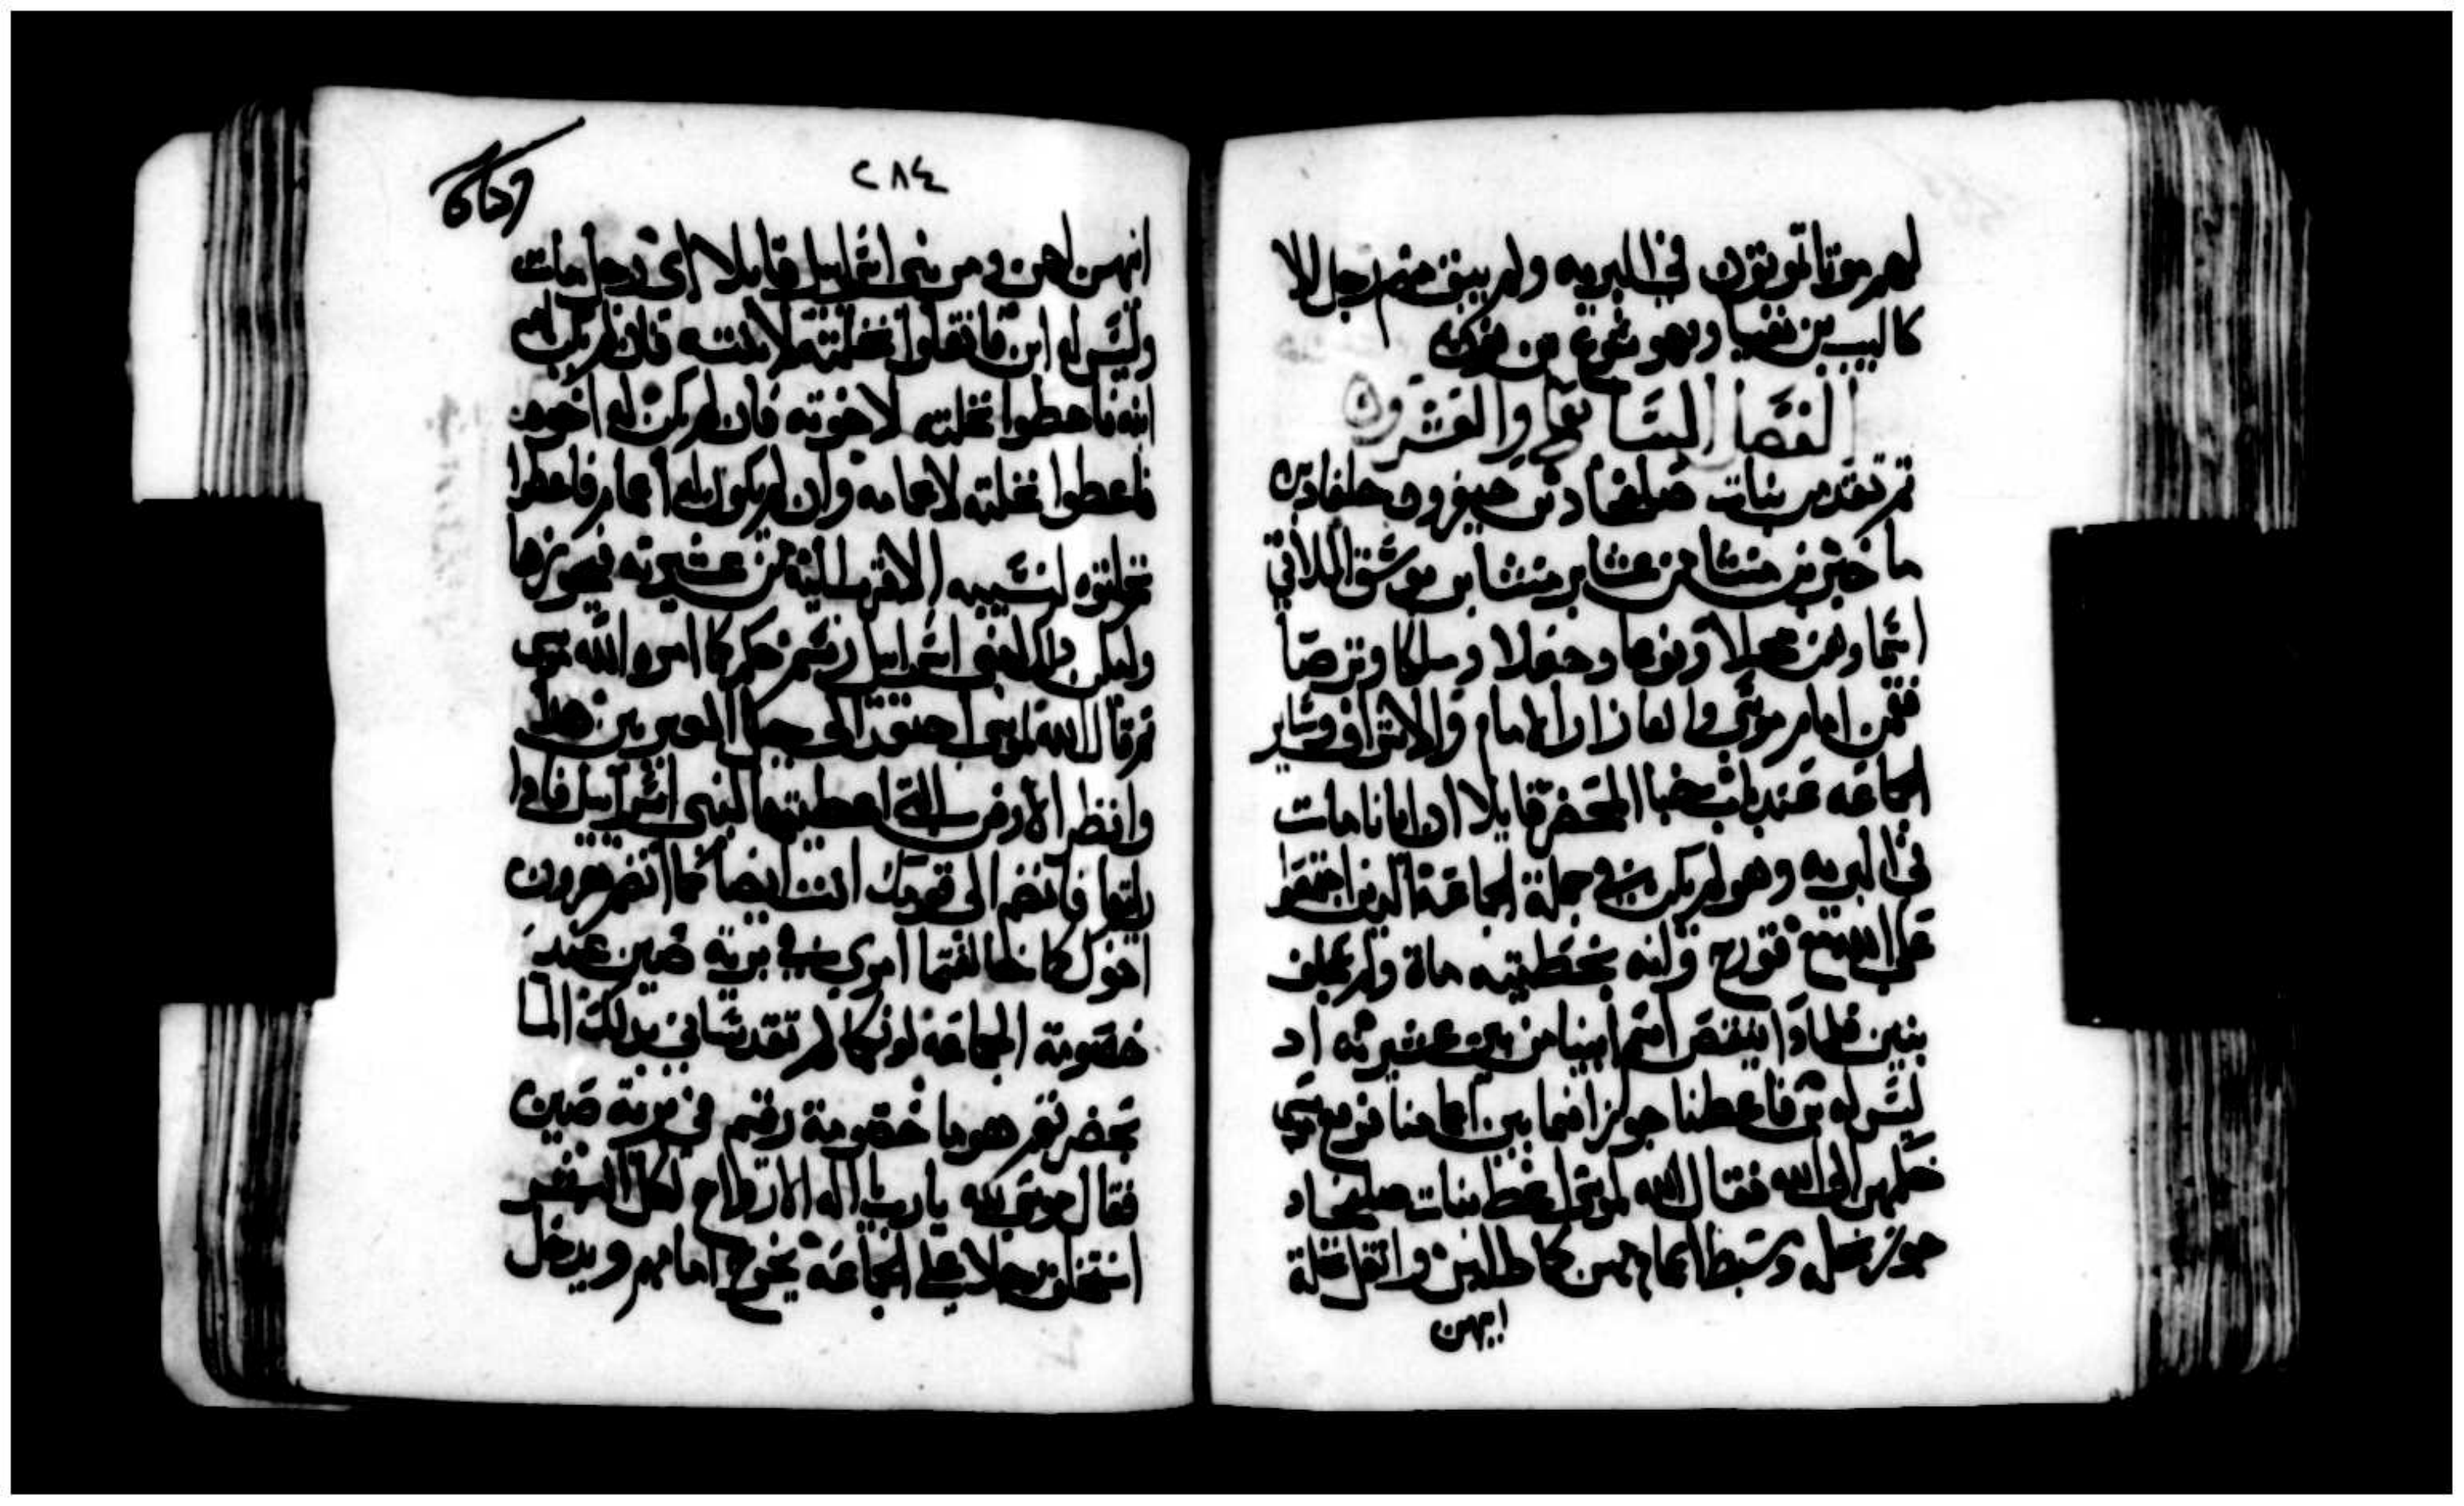 لهم موتا تموتون في البريه ولم يبق منهم رجل الا
كاليب بن يفنيا ويهوشوع بن نون
الفصل السابع والعشرون
ثم تقدم بنات صلفحاد بن حيفر بن جلعاد بن
ماخير بن منشا من عشاير منشا بن يوسف اللاتي
اسما وهن محلا ونوعا وحغلا وملكا وترصا
فقمن امام موسى والعازار الامام والاشراف وساير
الجماعه عند باب خبا المحضر قايلا ان ابانا مات
في البريه وهو لم يكن في جملة الجماعة الذين اجتمعوا
على الله مع قورح وانه بخطيته مات ولم يخلف
بنين فلماذا ينقص اسم ابينا من بين عشيرته اد
ليس له بن فاعطنا حوزا فيما بين اعمامنا فرفع موسى
حكمهن الى الله فقال الله لموسى اعط بنات صلفحاد
حوز نحله وسط اعمامهن كما طلبن وانقل نحلة
ابيهن
٢٨٤
ابيهن لهن ومر بني اسراييل قايلا اي رجل مات
وليس له ابن فانقلوا نحلته لابنته فان لم يكن له
ابنه فاعطوا نحلته لاخوته فان لم يكن له اخوه
فاعطوا نحلته لاعمامه وان لم يكن له اعمام فاعطوا
نحلته لنسيبه الاقرب اليه من عشيرته فيحوزها
وليكن ذلك لبني اسراييل رسم حكم كما امر الله موسى
ثم قال الله لموسى اصعد الى جبل العبريين هذا
وانظر الارض التي اعطيتها لبني اسراييل فاذا
رايتها فانضم الى قومك انت ايضا كما انضم هرون
اخوك كما خالفتما امري في برية صين عند
خصومة الجماعة لونكما لم تقدساني بدلك الما
بحضرتهم هو ما خصومة رقيم في برية صين
فقال موسى لله يا رب يا اله الارواح لكل البشر
استخلف رجلا على الجماعه يخرج امامهم ويدخل